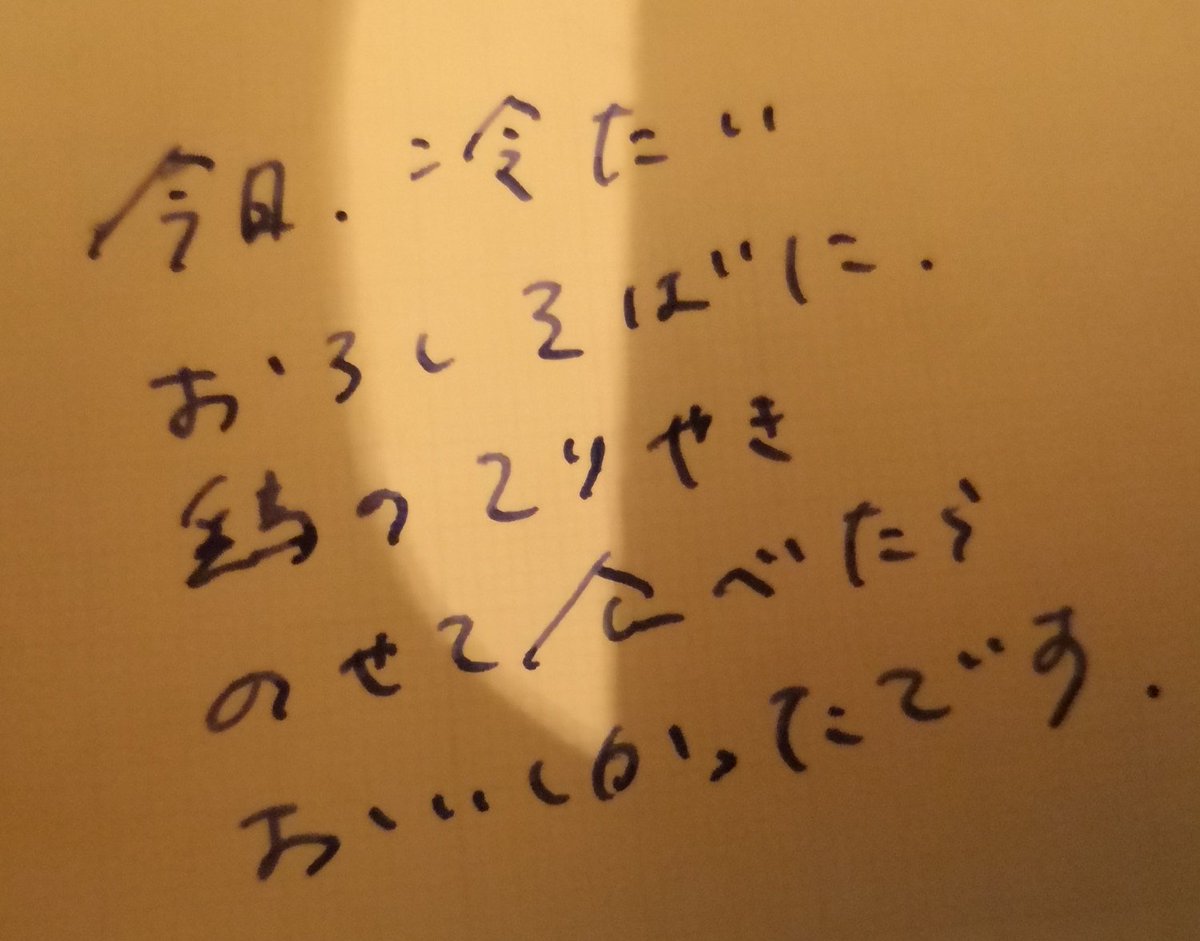 今日.冷たい
おろしそばに.
鶏のてりやき
のせて食べたら
おいしかったです.